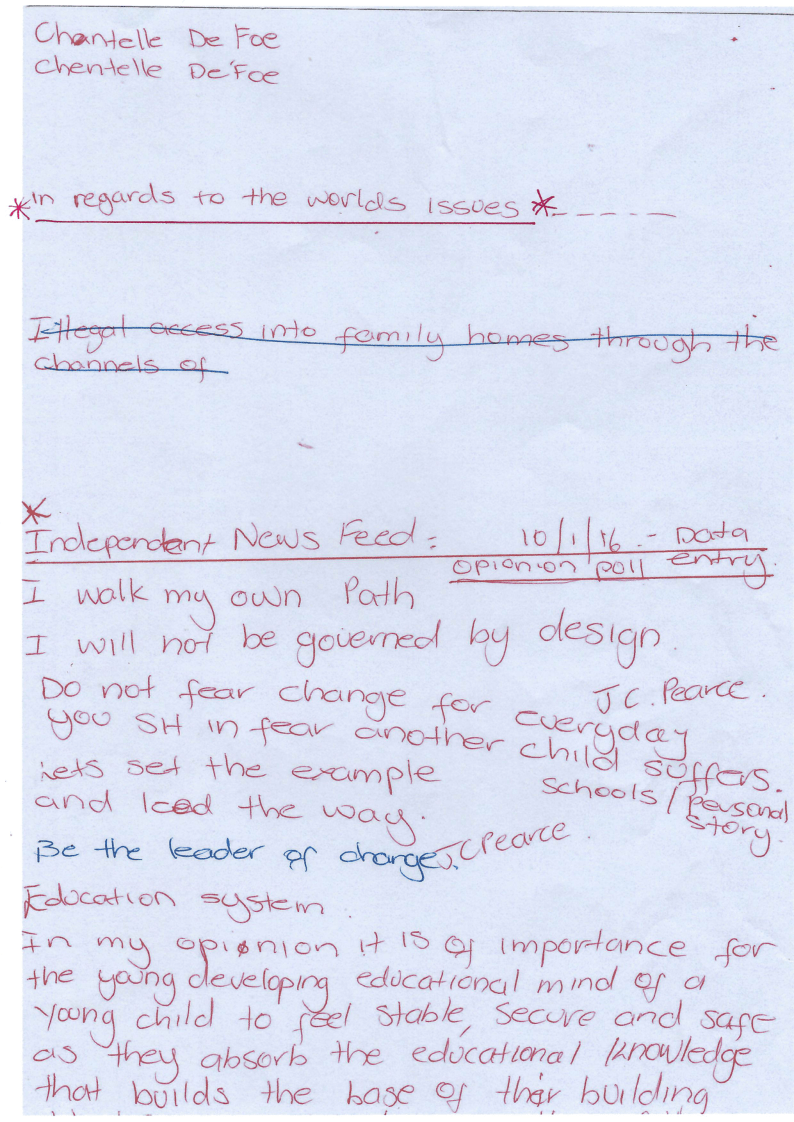 Chantelle De Foe
Chentelle De'Foe
*in regards to the worlds issues *_ _ _ _ _
Illegal access into family homes through the
channels of
*
Independent News Feed: 10/1/16 - Data
opionion poll entry.
I walk my own Path
I will not be governed by design.
Do not fear change for J C. Pearce.
you sit in fear another everyday
child suffers.
lets set the example
schools / personal
and lead the way. story.
Be the leader of change. JCPearce.
Education system.
In my opionion it is of importance for
the young developing educational mind of a
young child to feel stable, secure and safe
as they absorb the educational knowledge
that builds the base of their building